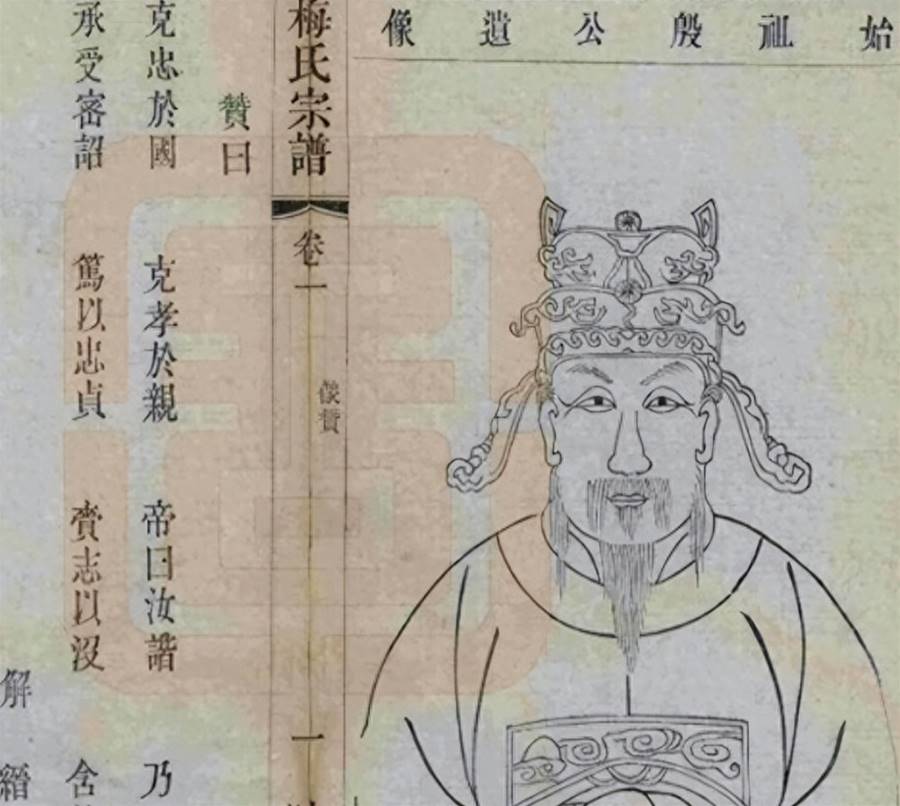 始祖殷公遺像
梅氏宗譜
卷一
像贊
一
贊曰
克忠於國 克孝於親 帝曰汝諧 乃
承受密詔 篤以忠貞 賫志以沒 含
解縉